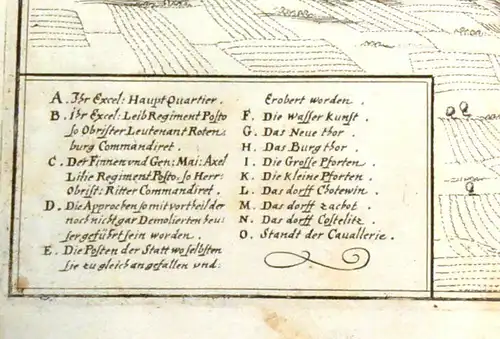 A. Ihr Excel: Haupt Quartier.
B. Ihr Excel: Leib Regiment Posto
so Obrister Leutenant Roten,
burg Commandiret.
C. Der Finnen vnd Gen: Mai: Axel
Lilie Regiment Posto: so Herr:
Obrist: Ritter Commandiret.
D. Die Approchen so mit vortheil der
noch nicht gar Demolierten heu,
ser geführt sein worden.
E. Die Posten der Statt wo selbsten
sie zu gleich an gefallen vnd:
Erobert worden.
F. Die Wasser Kunst.
G. Das Neue thor.
H. Das Burg thor.
I. Die Grosse Pforten.
K. Die Kleine Pforten.
L. Das dorff Chotewin.
M. Das dorff zachot.
N. Das dorff Costelitz.
O. Standt der Cavallerie.